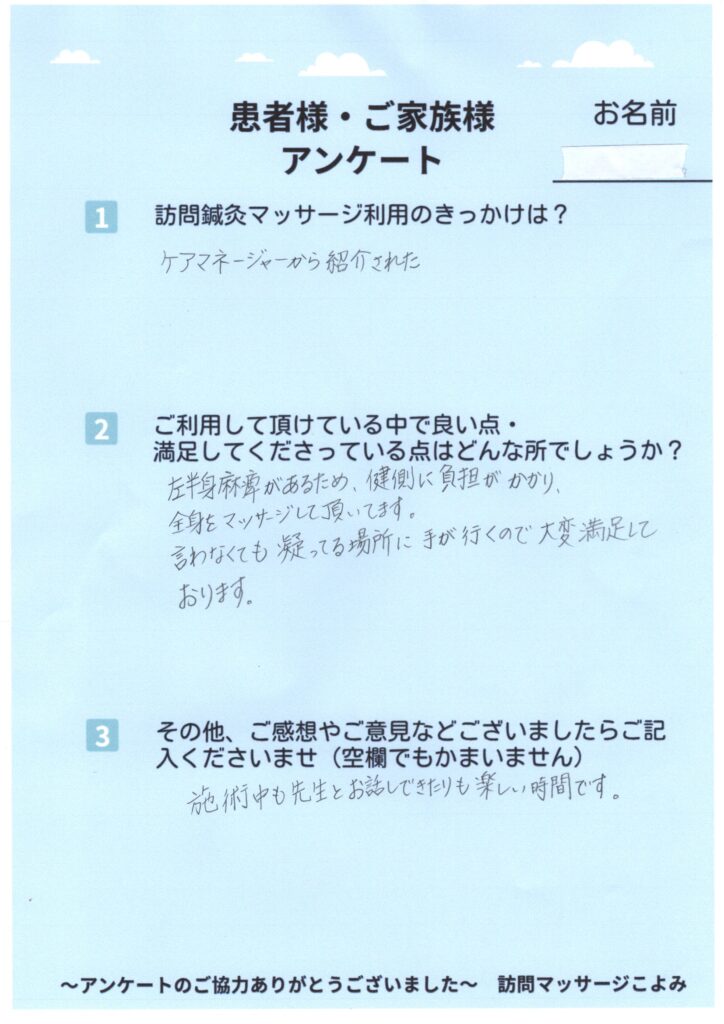 患者様・ご家族様
アンケート
お名前
1 訪問鍼灸マッサージ利用のきっかけは？
ケアマネージャーから紹介された
2 ご利用して頂けている中で良い点・
満足してくださっている点はどんな所でしょうか？
左半身麻痺があるため、健側に負担がかかり、
全身をマッサージして頂いてます。
言わなくても凝ってる場所に手が行くので大変満足して
おります。
3 その他、ご感想やご意見などございましたらご記
入くださいませ（空欄でもかまいません）
施術中も先生とお話しできたりも楽しい時間です。
〜アンケートのご協力ありがとうございました〜 訪問マッサージこよみ